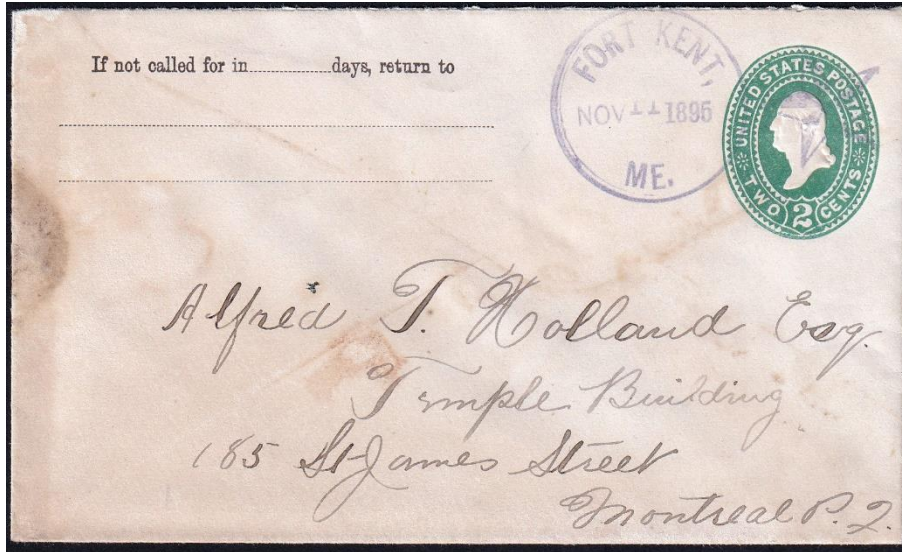 If not called for in..............days, return to
FORT KENT,
NOV 11 1896
ME.
UNITED STATES POSTAGE
TWO 2 CENTS
Alfred T. Holland Esq.
Temple Building
185 St-James Street
Montreal P. Q.